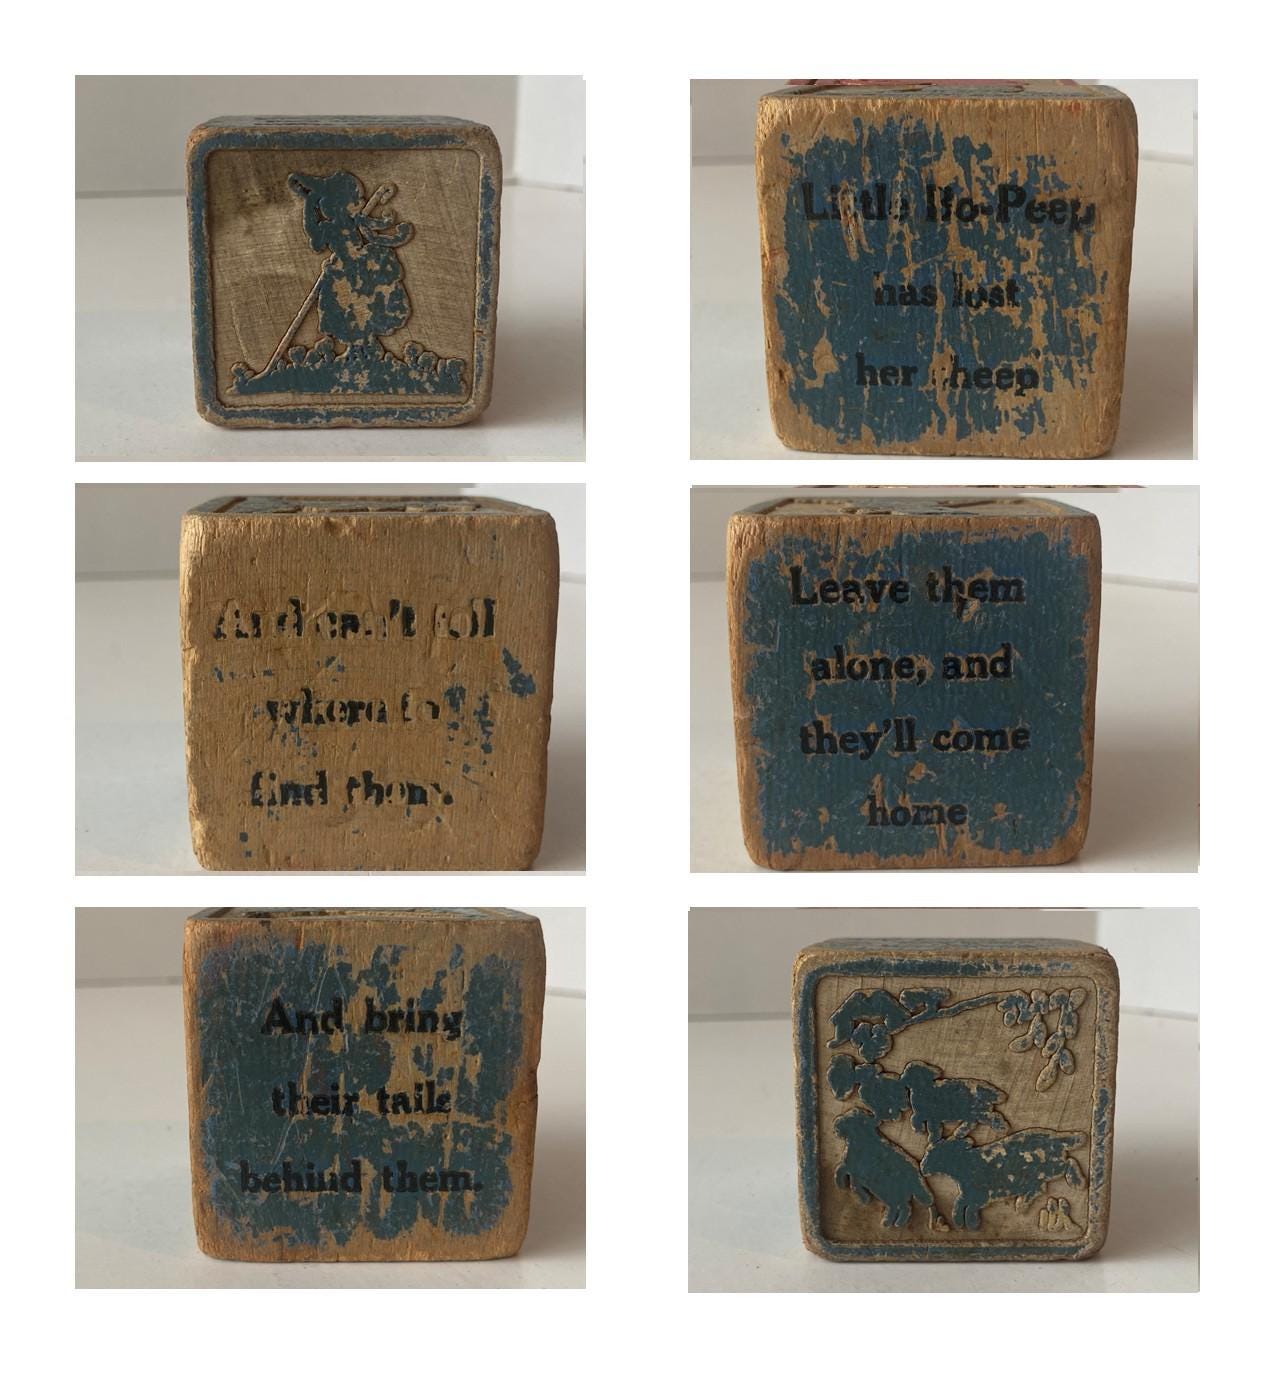 Little Bo-Peep
has lost
her sheep
And can't tell
where to
find them.
Leave them
alone, and
they'll come
home
And bring
their tails
behind them.